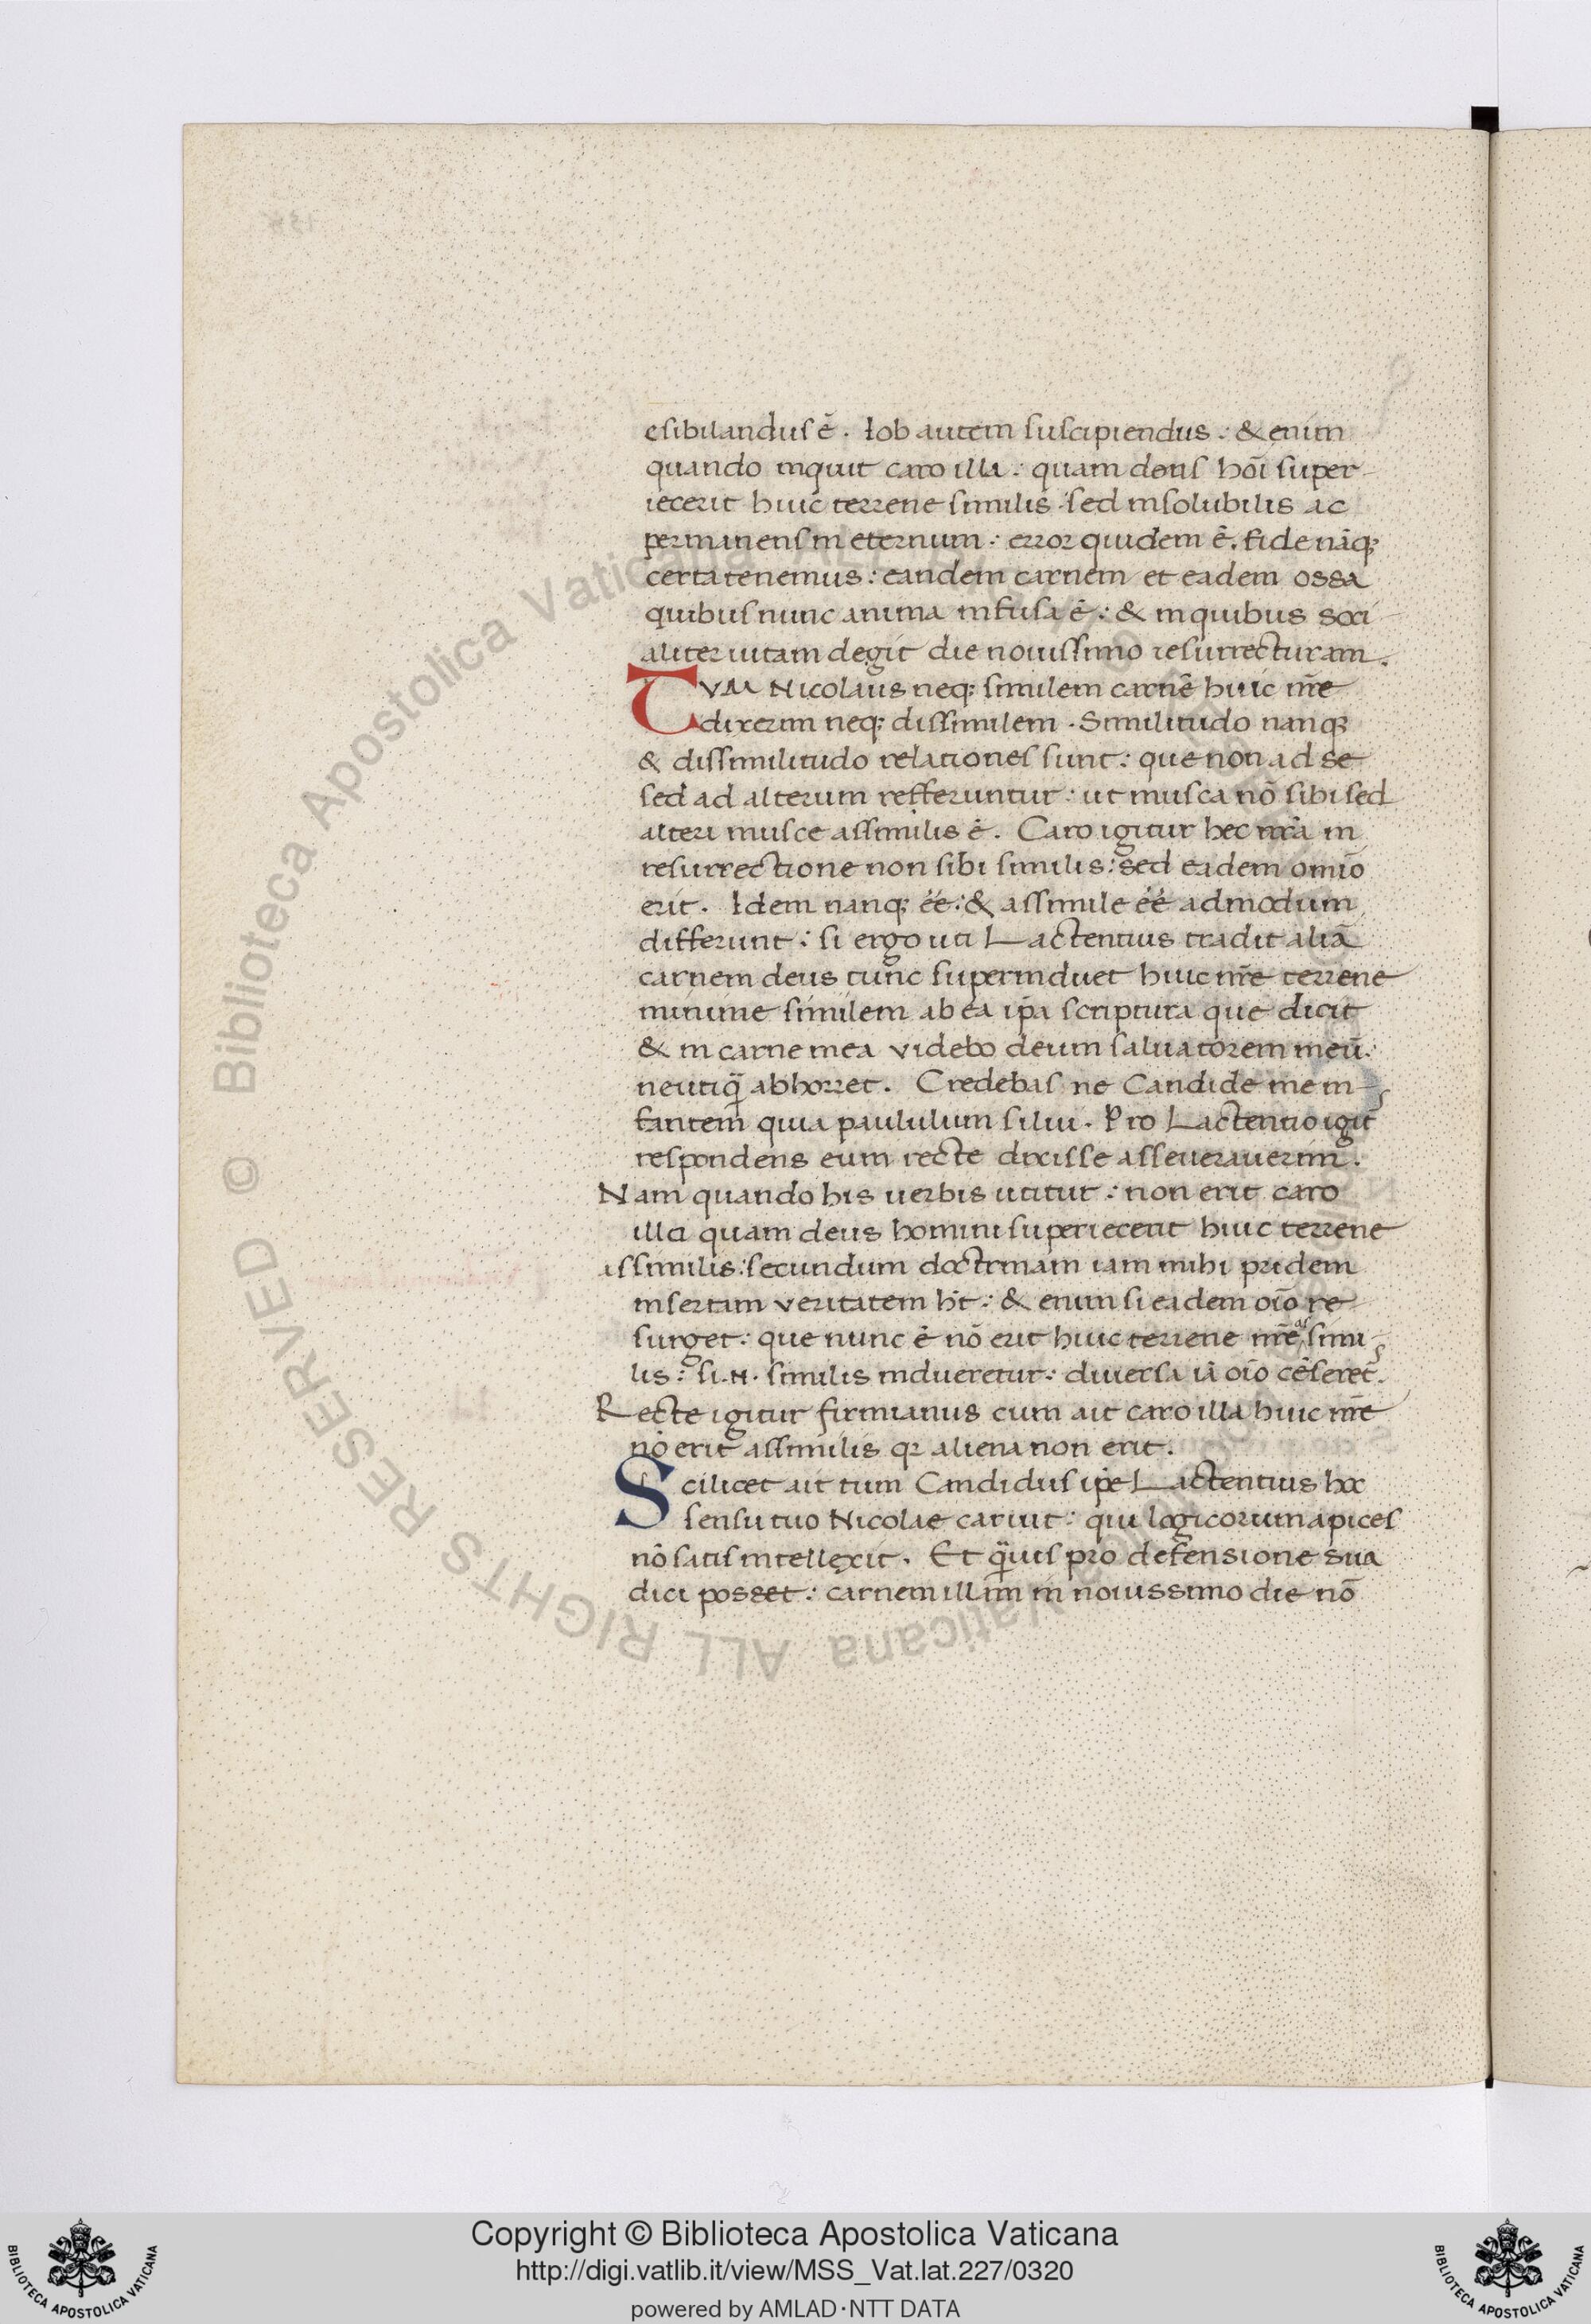 esibilandus ē. Iob autem suscipiendus: & enim
quando inquit caro illa: quam deus hōi super-
iecerit huic terrene similis sed insolubilis ac
permanens in eternum: error quidem ē. fide nāq;
certa tenemus: eandem carnem et eadem ossa
quibus nunc anima infusa ē: & in quibus soci-
aliter uitam degit die nouissimo resurrecturam.
TVM Nicolaus neq; similem carnē huic nr̄e
dixerim neq; dissimilem. Similitudo nanq;
& dissimilitudo relationes sunt: que non ad se
sed ad alterum refferuntur: ut musca nō sibi sed
alteri musce assimilis ē. Caro igitur hec nr̄a in
resurrectione non sibi similis: sed eadem omīo
erit. Idem nanq; ēē: & assimile ēē admodum
differunt: si ergo uti Lactentius tradit aliā
carnem deus tunc superinduet huic nr̄e terrene
minime similem ab ea ip̄a scriptura que dicit
& in carne mea videbo deum saluatorem meū:
neutiq̄ abhorret. Credebas ne Candide me in-
fantem quia paululum silui. Pro Lactentio igit̄
respondens eum recte dixisse asseuerauerim.
Nam quando his uerbis utitur: non erit caro
illa quam deus homini superiecerit huic terrene
assimilis: secundum doctrinam iam mihi pridem
insertam veritatem h̄t: & enim si eadem oīo re-
surget: que nunc ē nō erit huic terrene nr̄e as simi-
lis: si .N. similis indueretur: diuersa iā oīo cēseret̄.
Recte igitur firmianus cum ait caro illa huic nr̄e
nō erit assimilis qꝛ aliena non erit.
Scilicet ait tum Candidus ip̄e Lactentius hoc
sensu tuo Nicolae cariut: qui logicorum apices
nō satis intellexit. Et q̄uis pro defensione sua
dici posset: carnem illim in nouissimo die nō
© Biblioteca Apostolica Vaticana ALL RIGHTS RESERVED
Copyright © Biblioteca Apostolica Vaticana
http://digi.vatlib.it/view/MSS_Vat.lat.227/0320
powered by AMLAD·NTT DATA
BIBLIOTECA APOSTOLICA VATICANA
BIBLIOTECA APOSTOLICA VATICANA